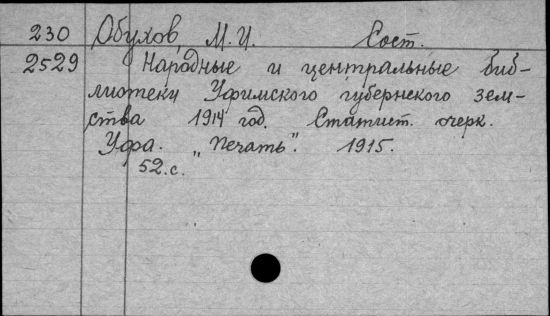 230 Обухов, М.И. Сост.
2529 Народные и центральные биб-
лиотеки Уфимского губернского зем-
ства 1914 год. Статист. очерк.
Уфа. „Печать". 1915.
52.с.